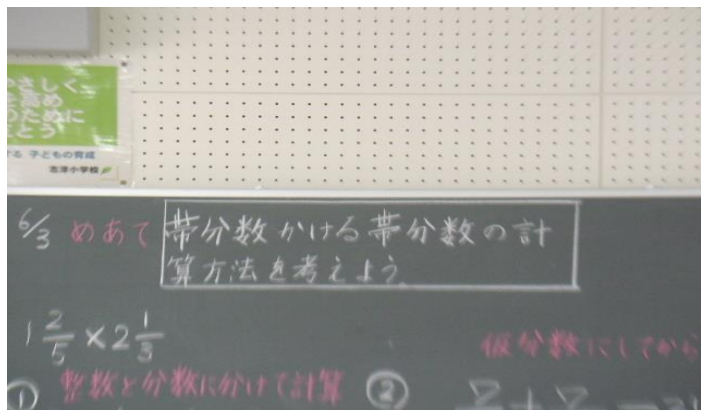 さしく
高め
のために
とう
する 子どもの育成
志津小学校
6/3 めあて 帯分数かける帯分数の計
算方法を考えよう。
1 2/5 × 2 1/3
仮分数にしてから
① 整数と分数に分けて計算 ②